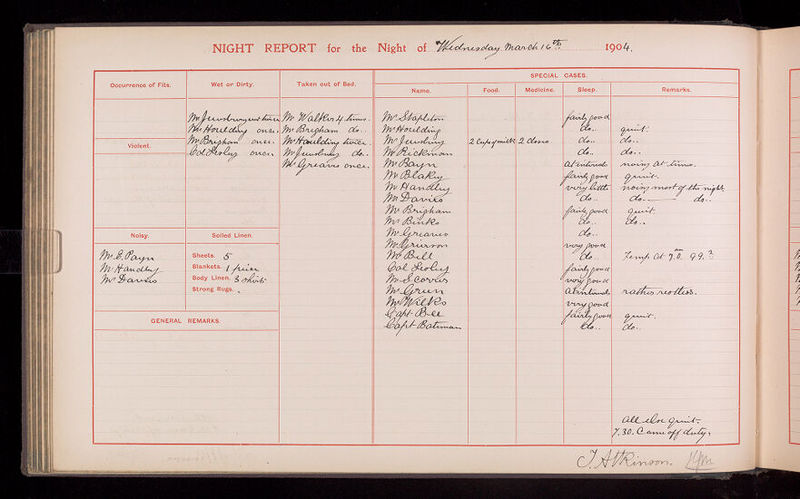 NIGHT REPORT for the Night of Wednesday March 16th 1904.
SPECIAL CASES.
Occurrence of Fits.
Wet or Dirty.
Taken out of Bed.
Name.
Food.
Medicine.
Sleep.
Remarks.
Violent.
Mr Houlding once.
Mr Brigham once.
once
Mr Walker 4 times.
Mr Brigham do.
Mr Houlding twice.
Mr Jewsbury do.
Mr Greaves once.
Mr Stapleton fairly good
Mr Houlding do. quiet.
Mr Jewsbury 2 Cups of milk 2 doses do. do.
Mr Rickman do. do.
Mr Payn at intervals noisy at times.
Mr Blakey fairly good quiet.
Mr Handley very little noisy most of the night
Mr Davies do. do. do.
Mr Brigham fairly good quiet.
Mr Binks do. do.
Mr Greaves do.
Mr Grierson very good
Mr Bell do Temp. at 7.0. am 99.
Col fairly good
Mr very good
Mr Green at intervals rather restless.
Mr Wilks very good
Capt Bell fairly good quiet.
Capt Bateman do. do.
Noisy.
Mr E. Payn
Mr Handley
Mr Davies
Soiled Linen.
Sheets. 5
Blankets. 1 piece
Body Linen. 3 shirts
Strong Rugs.
GENERAL REMARKS.
All else quiet.
7.30. Came off duty.
T. Atkinson.